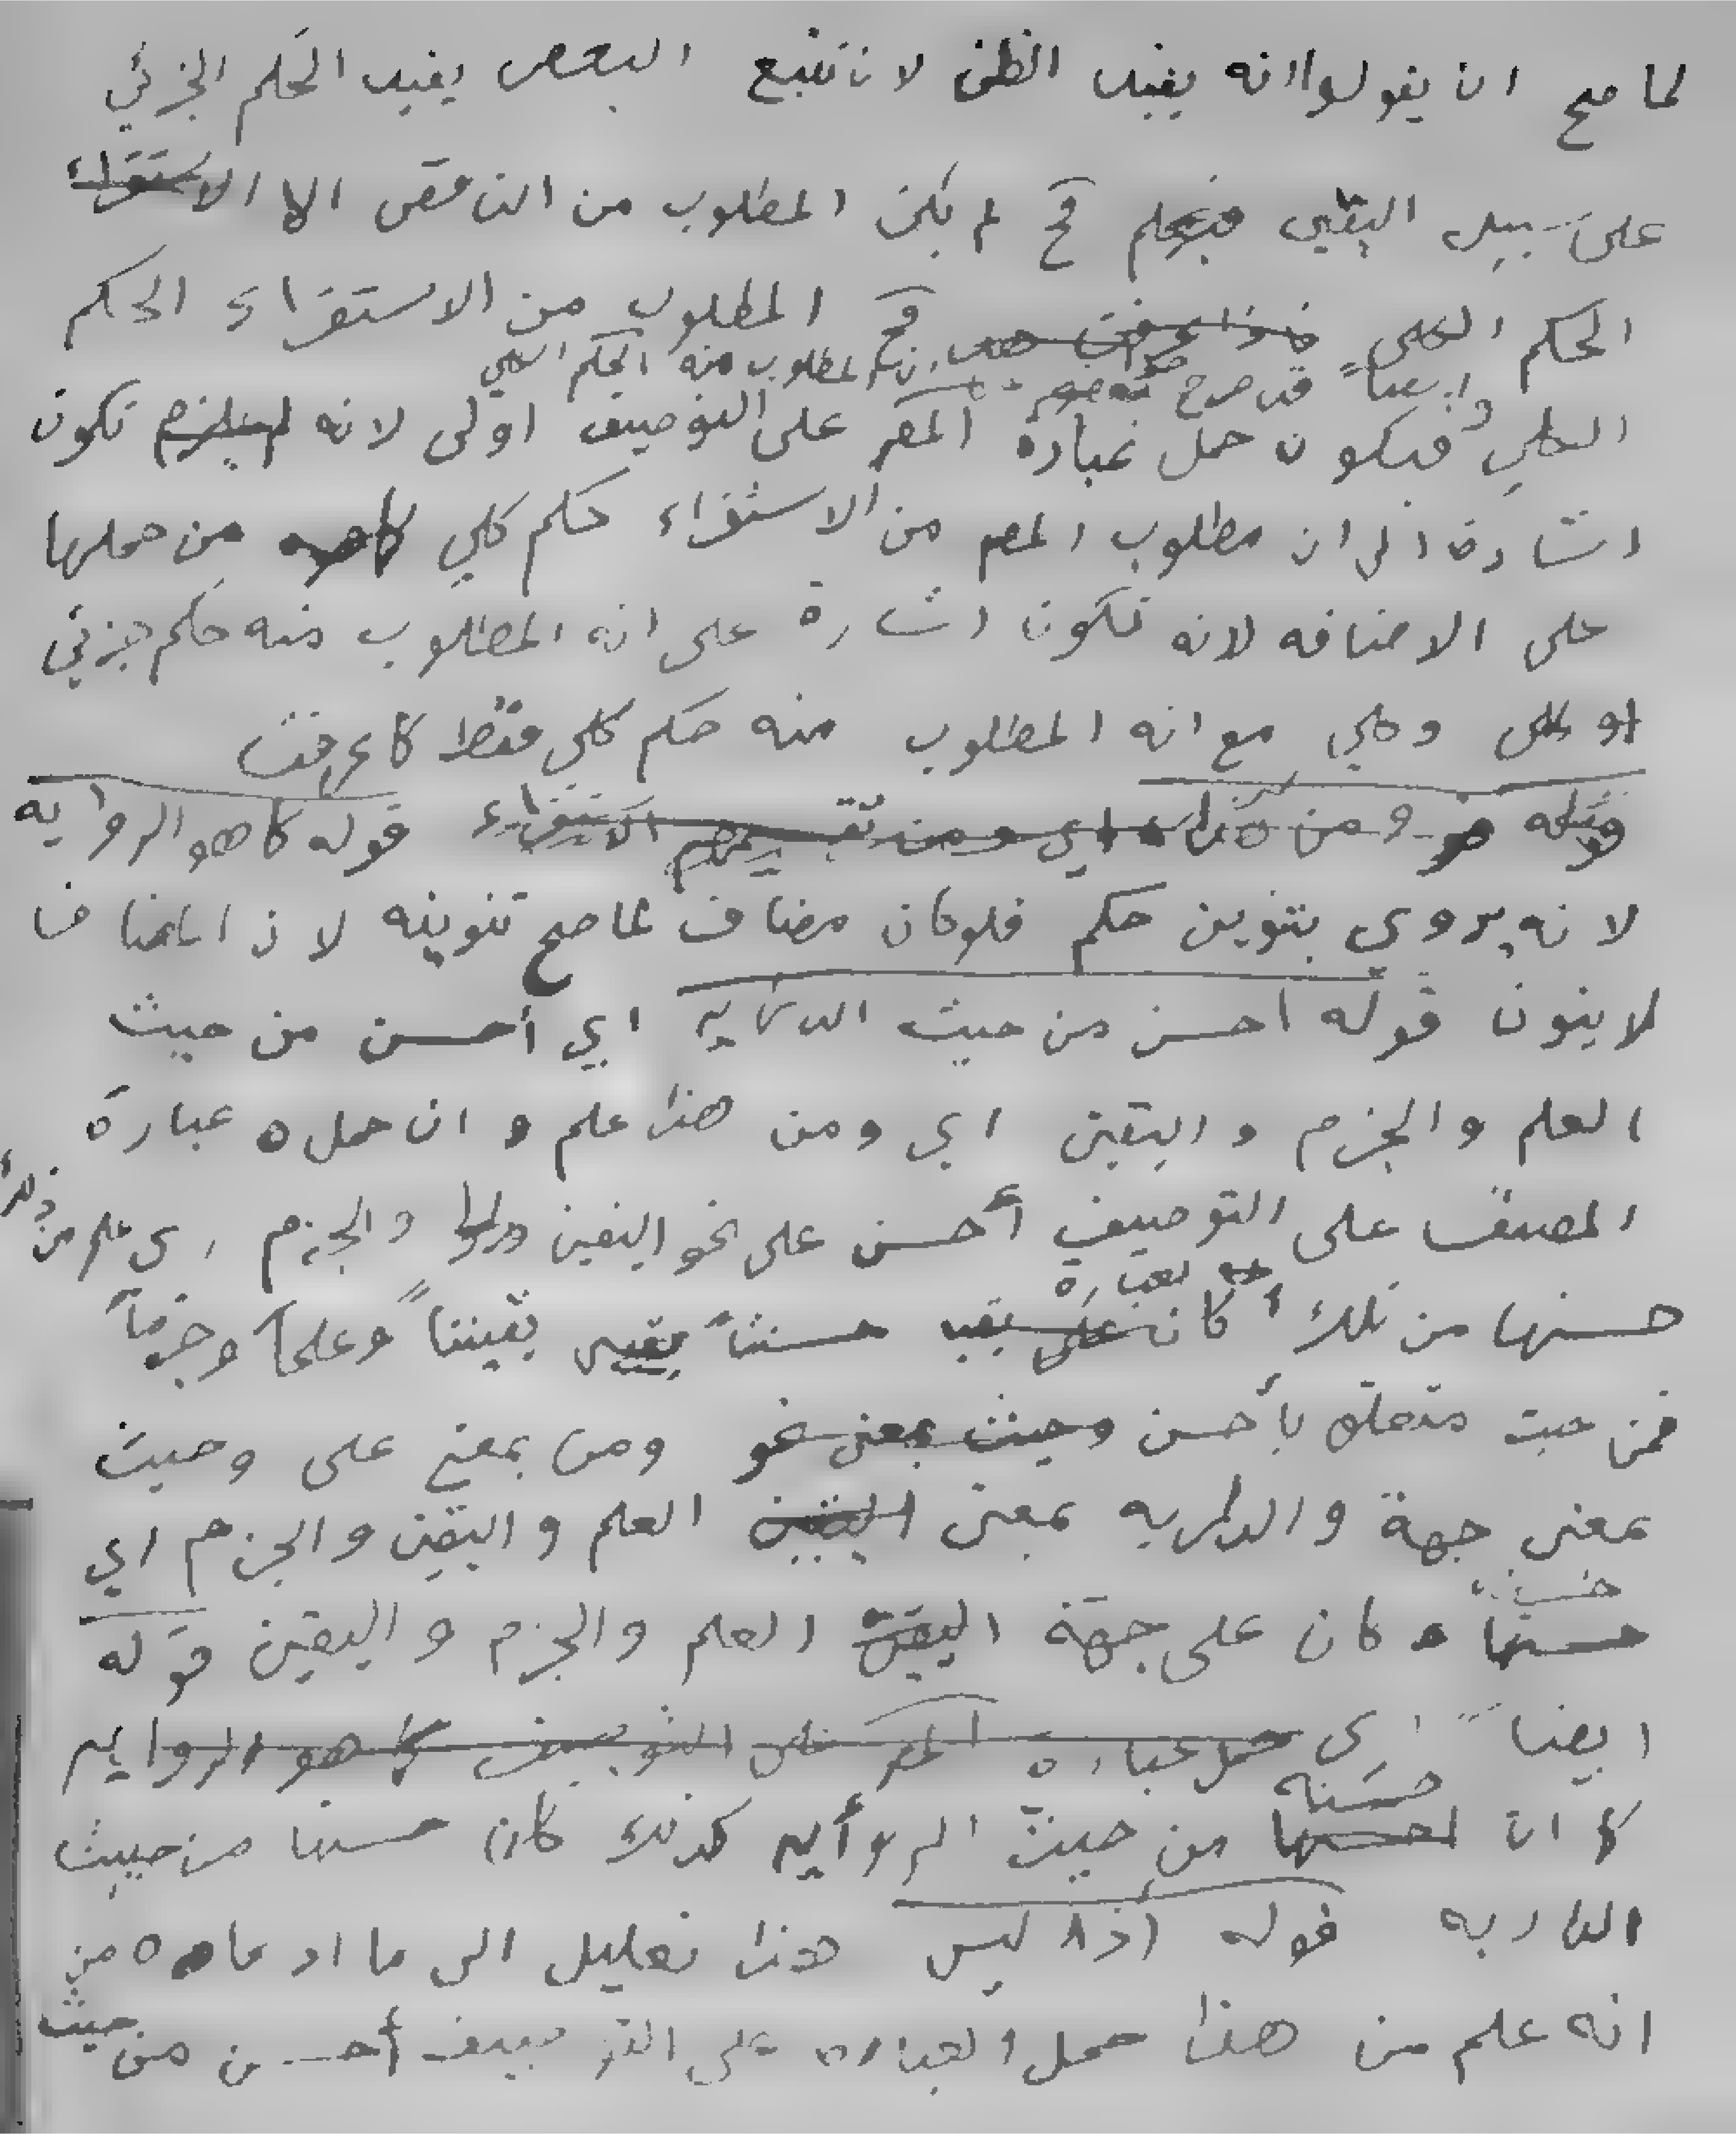 لما صح ان يقولوا انه يفيد الظن لان تتبع البعض يفيد الحكم الجزئي
على سبيل اليقين فح لم يكن المطلوب من الناقص الا الاستقراء
الحكم الكلي فح المطلوب من الاستقراء الحكم
وايضاً قد صرح ان المطلوب منه الحكم الكلي
الكلي فيكون حمل عبارة المصـ على التوصيف اولى لانه تكون
اشارة الى ان مطلوب المصـ من الاستقراء حكم كلي من حملها
على الاضافه لانه تكون اشارة على انه المطلوب منه حكم جزئي
او كلي وكلي مع انه المطلوب منه حكم كلي فقط كما عرفت
قوله ومن هذا اي ومن تقسيمهم الاستقراء قوله كما هو الروايه
لانه يروي بتنوين حكم فلو كان مضاف لما صح تنوينه لان المضاف
لا ينون قوله احسن من حيث الدرايه اي أحسن من حيث
العلم والجزم واليقين اي ومن هذا علم و ان حمل عبارة
المصنف على التوصيف أحسن على نحو اليقين والجزم اي علم من ذلك
العبارة
حسنها من تلك كان على حسناً يقيناً وعلماً وجزماً
فمن حيث متعلق بأحسن وحيث بمعنى نحو ومن بمعنى على وحيث
بمعنى جهة والدرايه بمعنى اليقين العلم واليقين والجزم اي
حسنها كان على جهة اليقين العلم والجزم واليقين قوله
ايضاً اي حمل عبارة المصـ على التوصيف كما هو الروايه
حسنه
كما ان احسنها من حيث الروأيه كذلك كان حسنا من حيث
الدرايه قوله أذ ليس هذا تعليل الى ما ادعاه من
انه علم من هذا حمل العباره على التوصيف أحسن من حيث